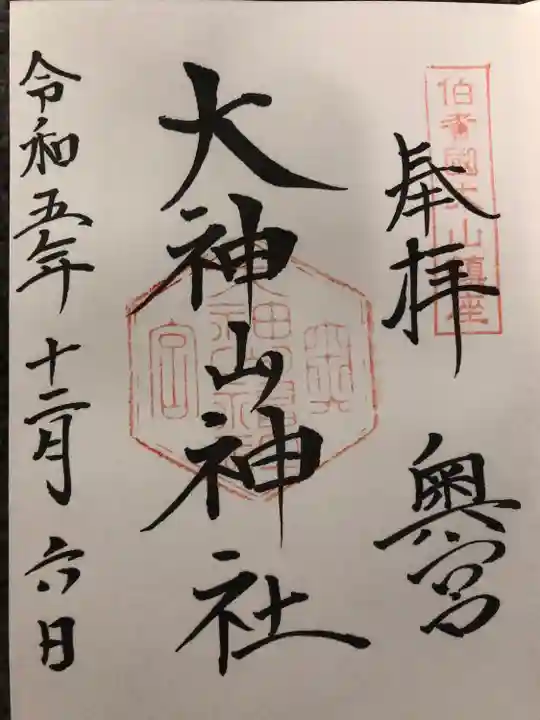 伯耆國大山鎮座
奉拝
奥宮
大神山神社
奥宮
令和五年十二月六日